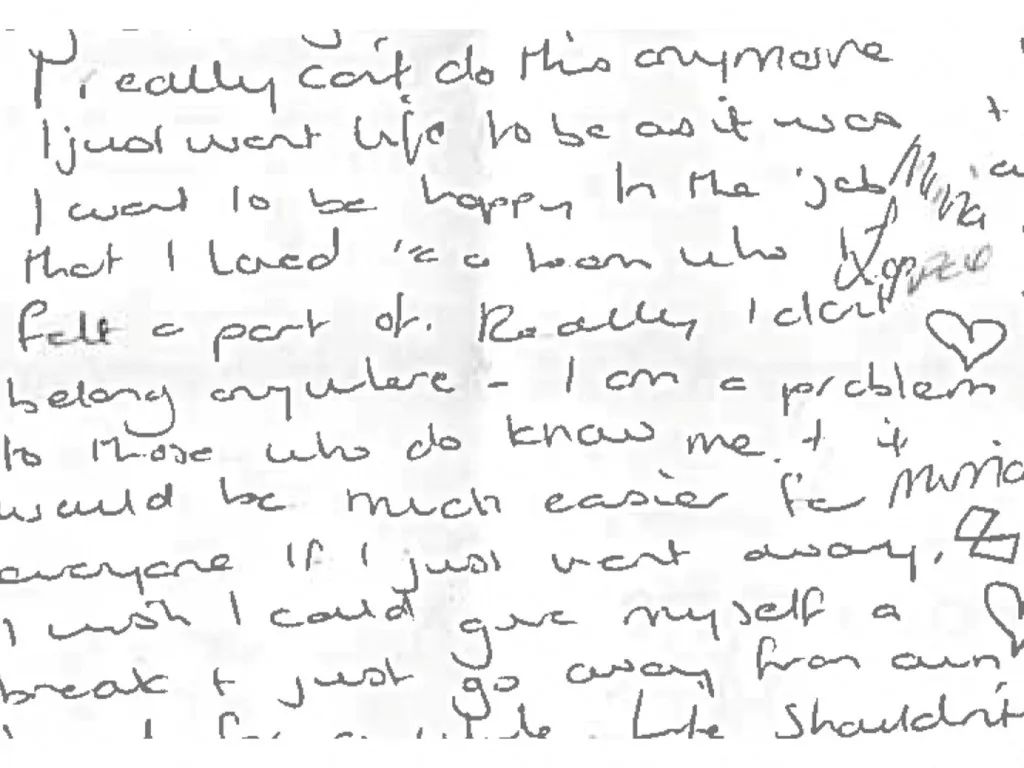 I really can't do this anymore
I just want life to be as it was +
I want to be happy In the job
that I loved
felt a part of. Really I don't
belong anywhere - I am a problem
to those who do know me + it
would be much easier for
everyone If I just went away.
I wish I could give myself a
break + just go away from own
for a while. Life Shouldn't